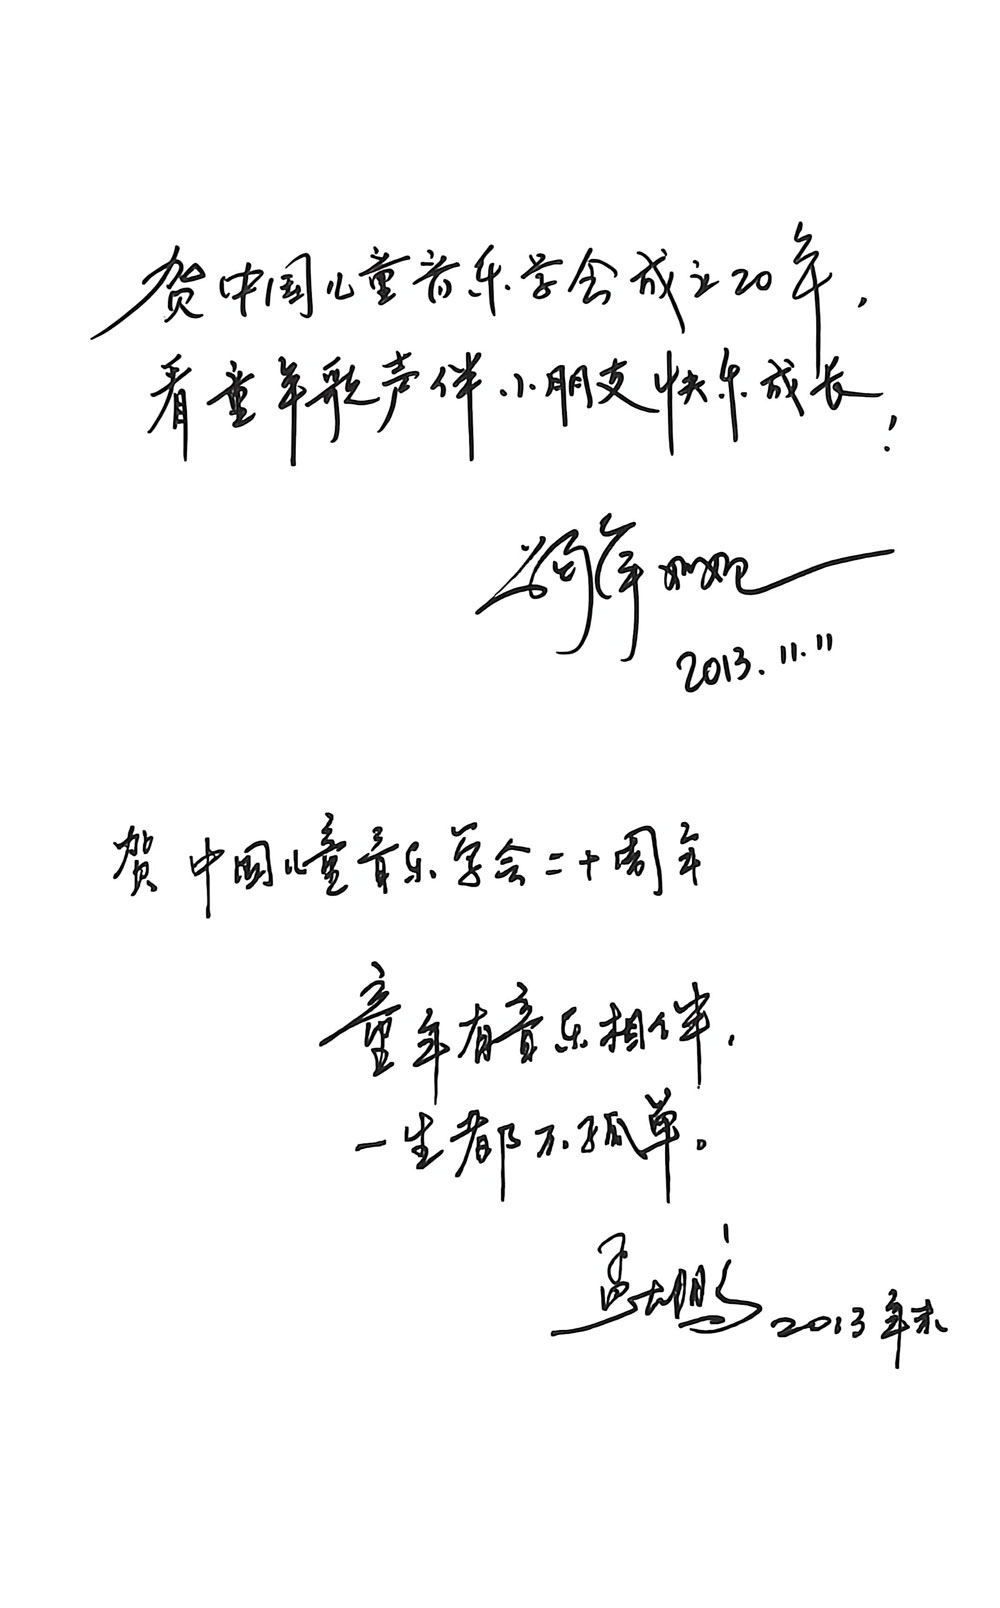 贺中国儿童音乐学会成立20年，
看童年歌声伴小朋友快乐成长！
鞠萍姐姐
2013.11.11
贺中国儿童音乐学会二十周年
童年有音乐相伴，
一生都不孤单。
孟大鹏 2013年末